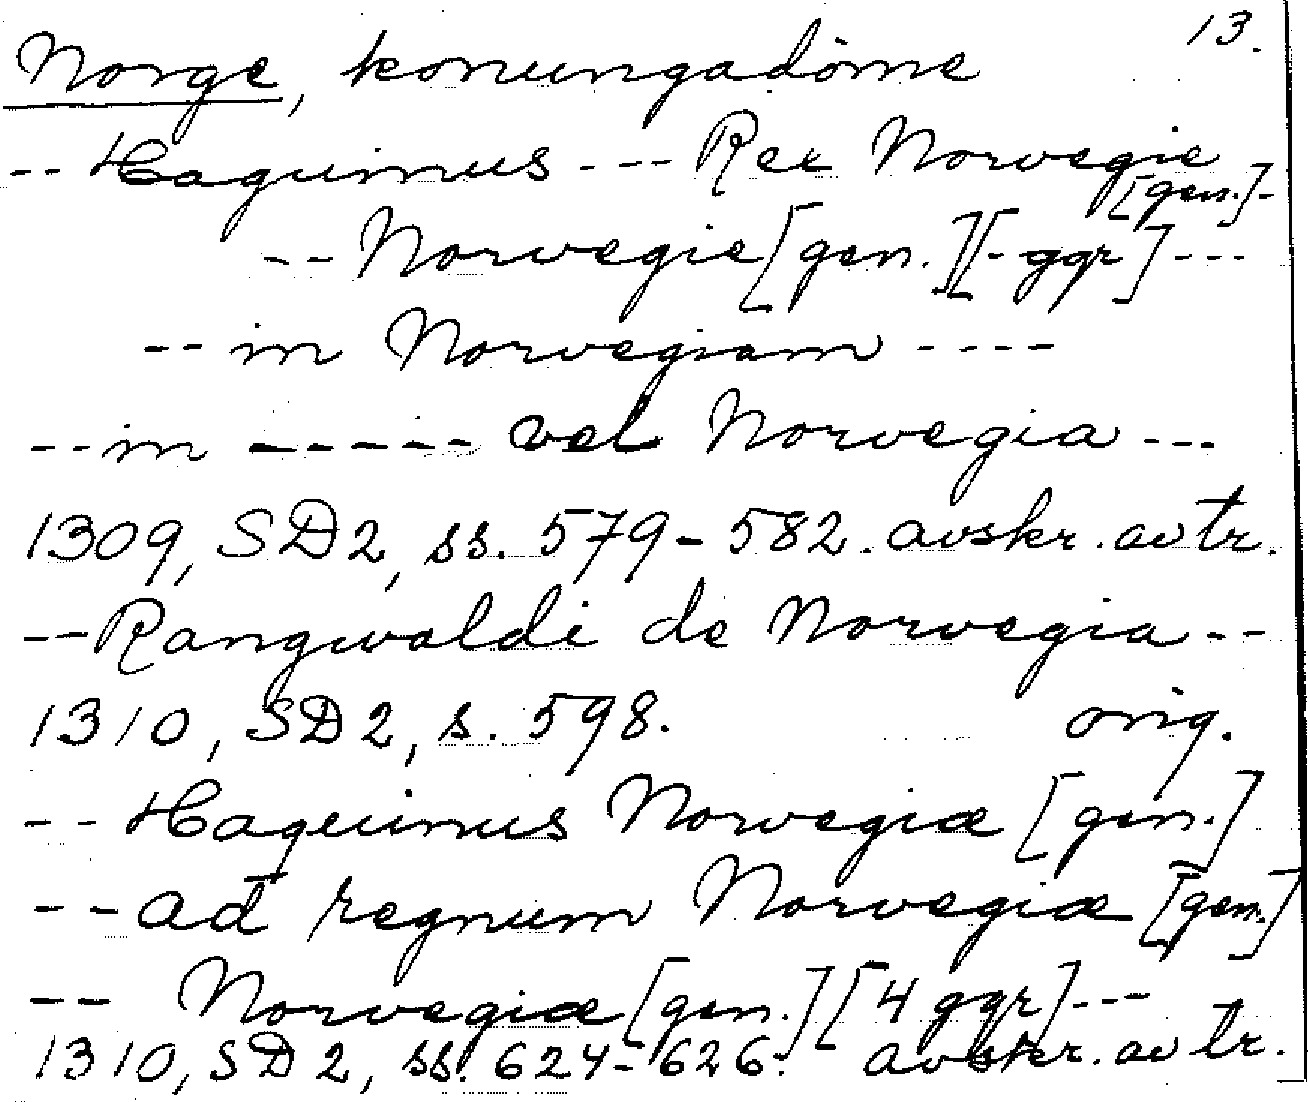 13.
Norge, konungadöme
-- Haquinus --- Rex Norvegie
[gen.]-
-- Norvegie [gen.][- ggr] ---
-- in Norvegiam ----
-- in ----- vel Norvegia ---
1309, SD2, ss. 579-582. avskr. av tr.
-- Rangwaldi de Norvegia --
1310, SD2, s. 598. orig.
-- Haquinus Norvegiæ [gen.]
-- ad regnum Norvegiæ [gen.]
-- Norvegiæ [gen.] [4 ggr] ---
1310, SD2, ss. 624-626. avskr. av tr.